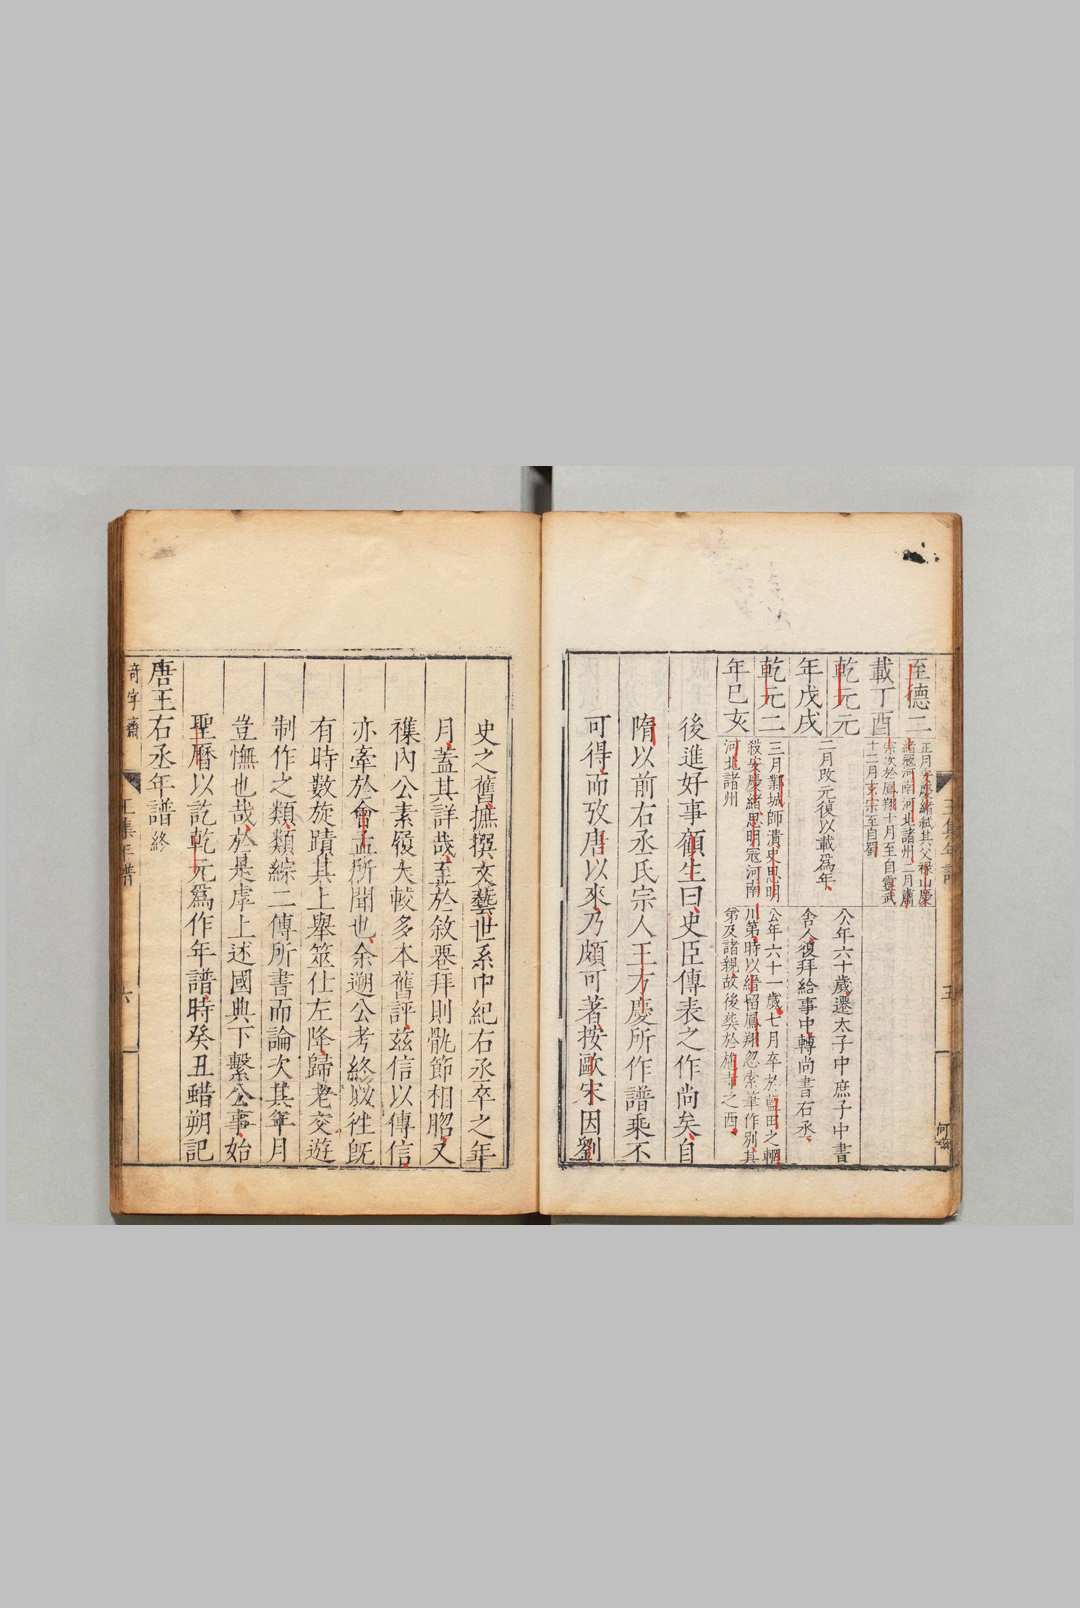 至德二
載丁酉
正月安慶緒弑其父祿山慶
緒寇河南河北諸州二月肅
宗次於鳳翔十月至自靈武
十二月玄宗至自蜀
乾元元
年戊戌
二月改元復以載爲年
公年六十歲遷太子中庶子中書
舍人復拜給事中轉尚書右丞
乾元二
年己亥
三月鄴城師潰史思明
殺安慶緒思明寇河南
河北諸州
公年六十一歲七月卒於藍田之輞
川第時以縉留鳳翔忽索筆作別其
弟及諸親故後葬於 之西
後進好事顧生曰史臣傳表之作尚矣自
隋以前右丞氏宗人王方慶所作譜乘不
可得而攷唐以來乃頗可著按歐宋因劉
五
何
史之舊摭撰文藝世系巾紀右丞卒之年
月蓋其詳哉至於敘遷拜則骩節相䏚又
襍內公素履大較多本舊評茲信以傳信
亦牽於會盂所聞也余遡公考終歲徃旣
有時數旋蹟其上舉筮仕左降歸老交遊
制作之類類綜二傳所書而論次其年月
豈憮也哉於是虖上述國典下繫公事始
聖曆以訖乾元爲作年譜時癸丑蜡朔記
唐王右丞年譜終
奇字齋
王集年譜
六